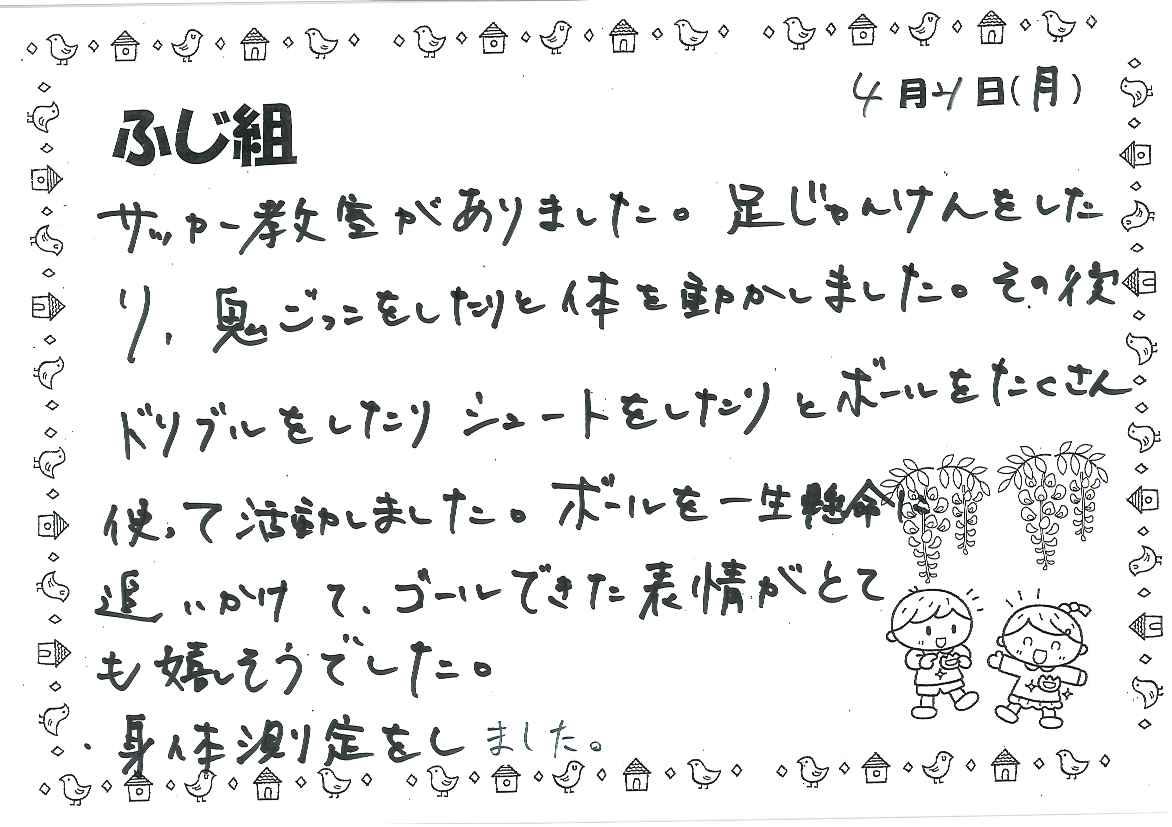 4月21日(月)
ふじ組
サッカー教室がありました。足じゃんけんをした
り、鬼ごっこをしたりと体を動かしました。その後
ドリブルをしたりシュートをしたりとボールをたくさん
使って活動しました。ボールを一生懸命に
追いかけて、ゴールできた表情がとて
も嬉しそうでした。
・身体測定をしました。